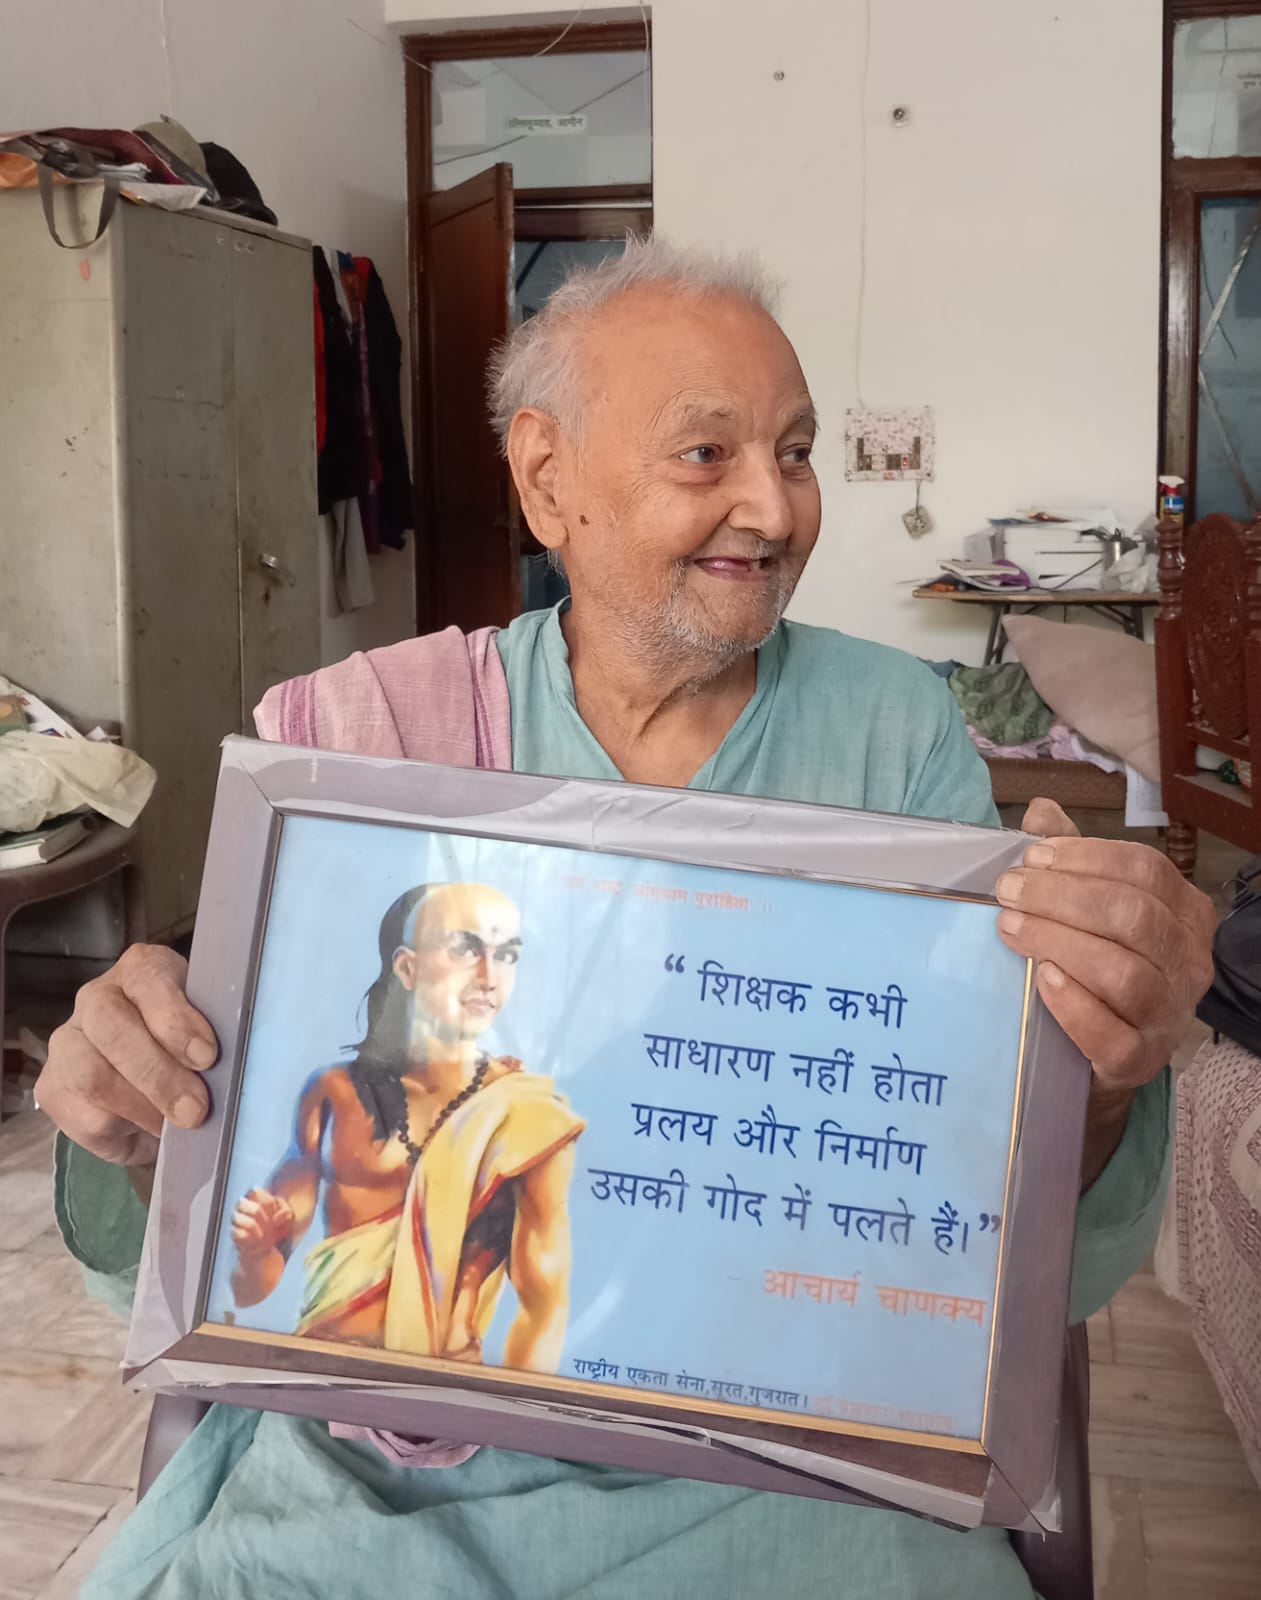 पुरोहिता ।।
“ शिक्षक कभी
साधारण नहीं होता
प्रलय और निर्माण
उसकी गोद में पलते हैं।”
आचार्य चाणक्य
राष्ट्रीय एकता सेना,सूरत,गुजरात।